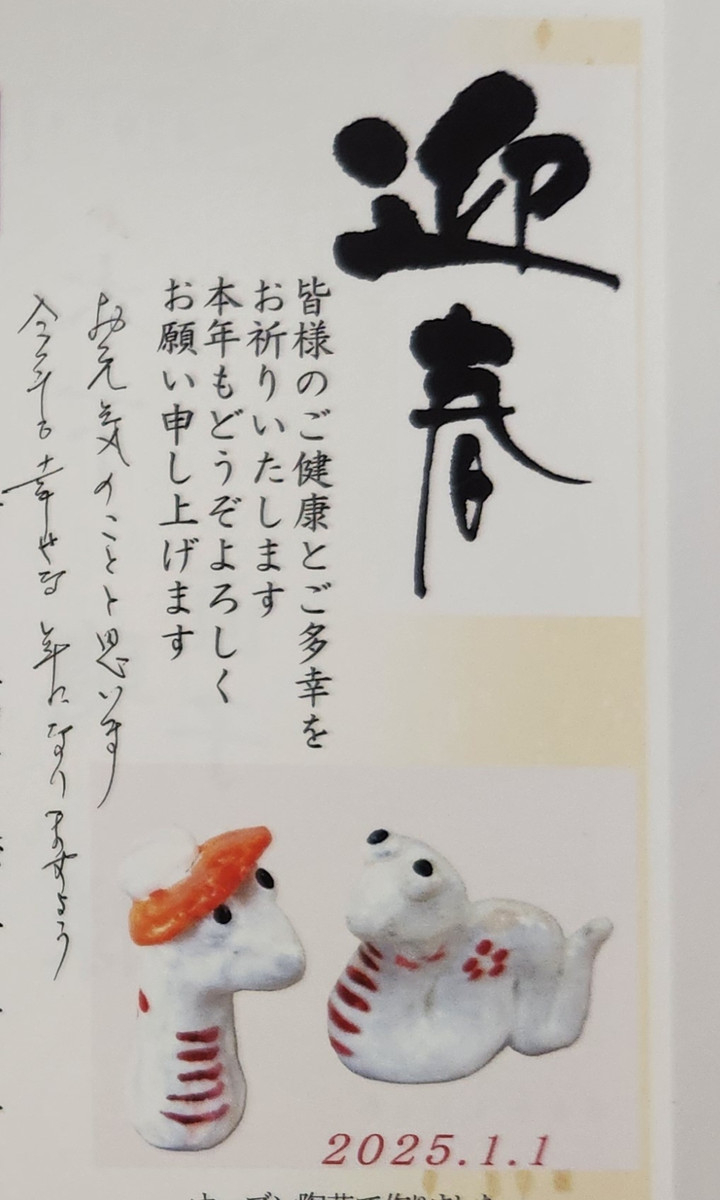 迎春
皆様のご健康とご多幸を
お祈りいたします
本年もどうぞよろしく
お願い申し上げます
お元気のことと思います
今年も幸せな年になりますよう
2025.1.1
オーブン陶芸で作りました